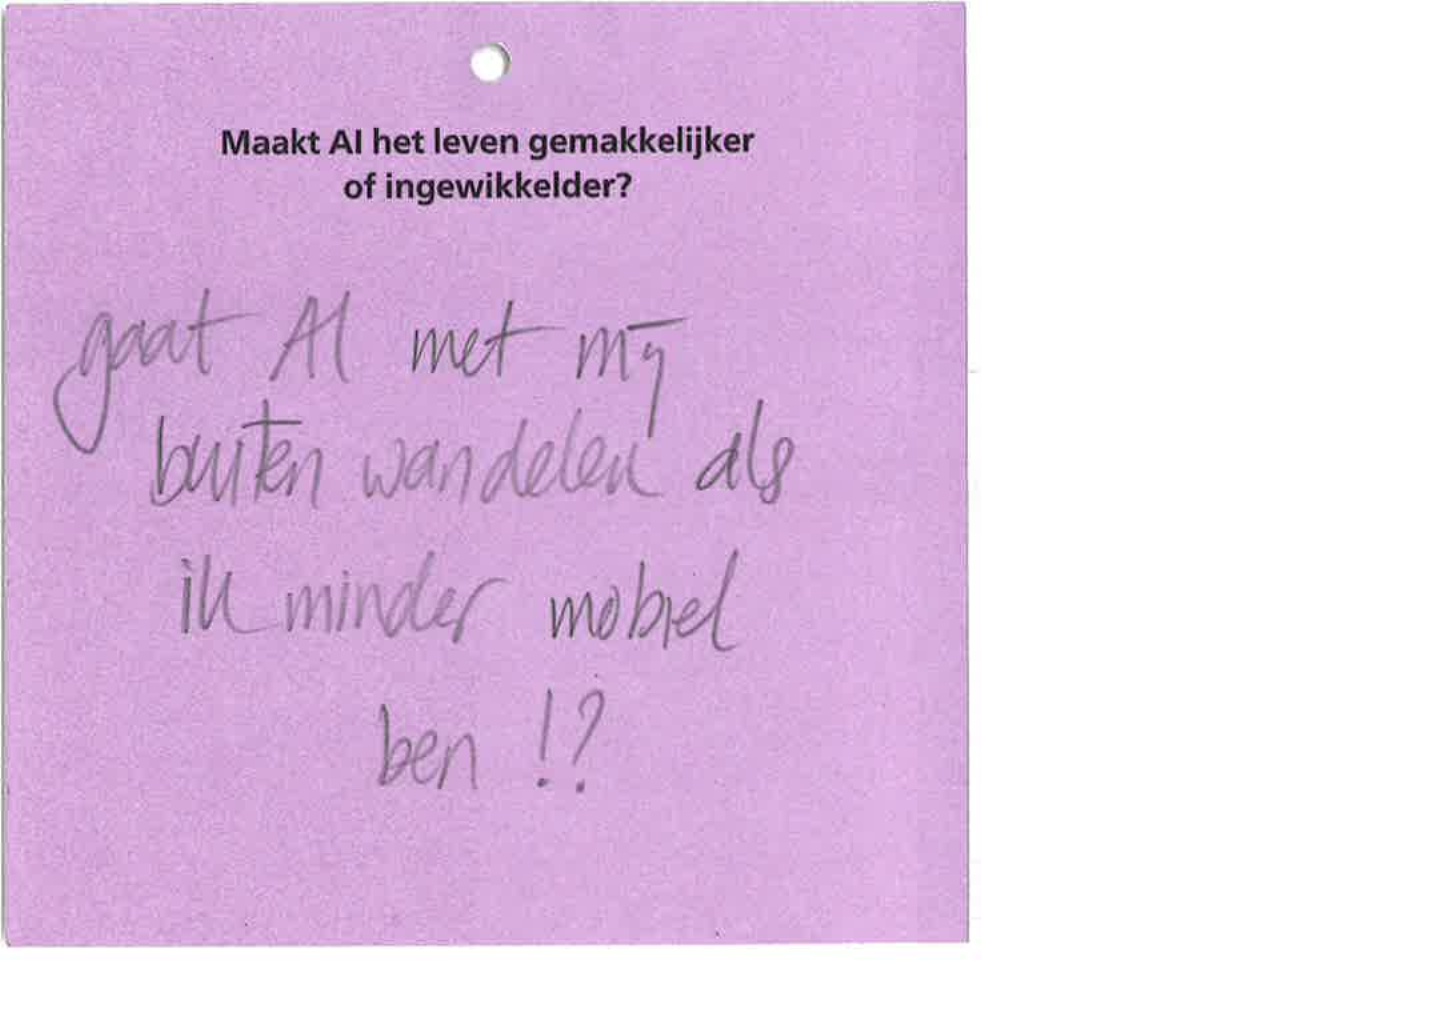 Maakt AI het leven gemakkelijker
of ingewikkelder?
gaat AI met mij
buiten wandelen als
ik minder mobiel
ben !?